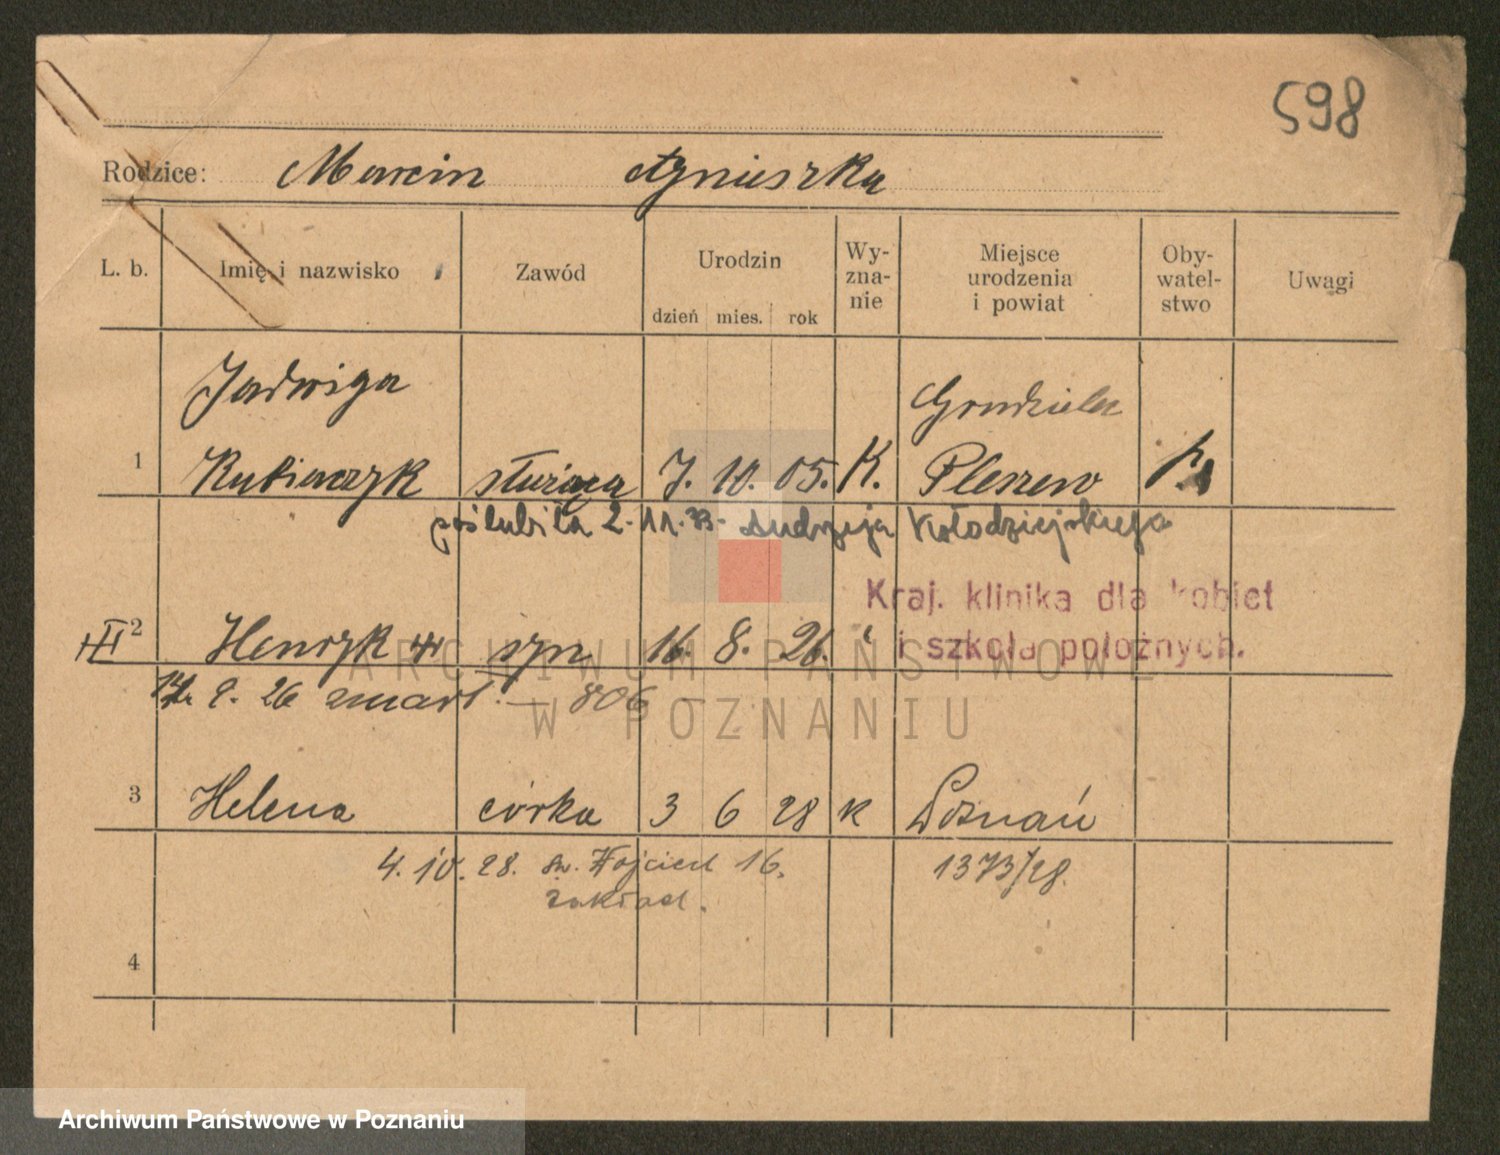 598
Rodzice: Marcin Agnieszka
L. b. Imię i nazwisko Zawód Urodzin dzień mies. rok Wy-zna-nie Miejsce urodzenia i powiat Oby-watel-stwo Uwagi
Jadwiga Grudzielec
1 Rubinczyk służąca 7. 10. 05. K. Pleszew
poślubiła 2. 11. 33. Andrzeja Kołodziejskiego
Kraj. klinika dla kobiet
2 Henryk syn 16. 8. 26. i szkoła położnych.
8. 26 zmarł. — 806
3 Helena córka 3 6 28 K Poznań
4. 10. 28. św. Wojciech 16. 1373/28.
zakład.
4
ARCHIWUM PAŃSTWOWE
W POZNANIU
Archiwum Państwowe w Poznaniu